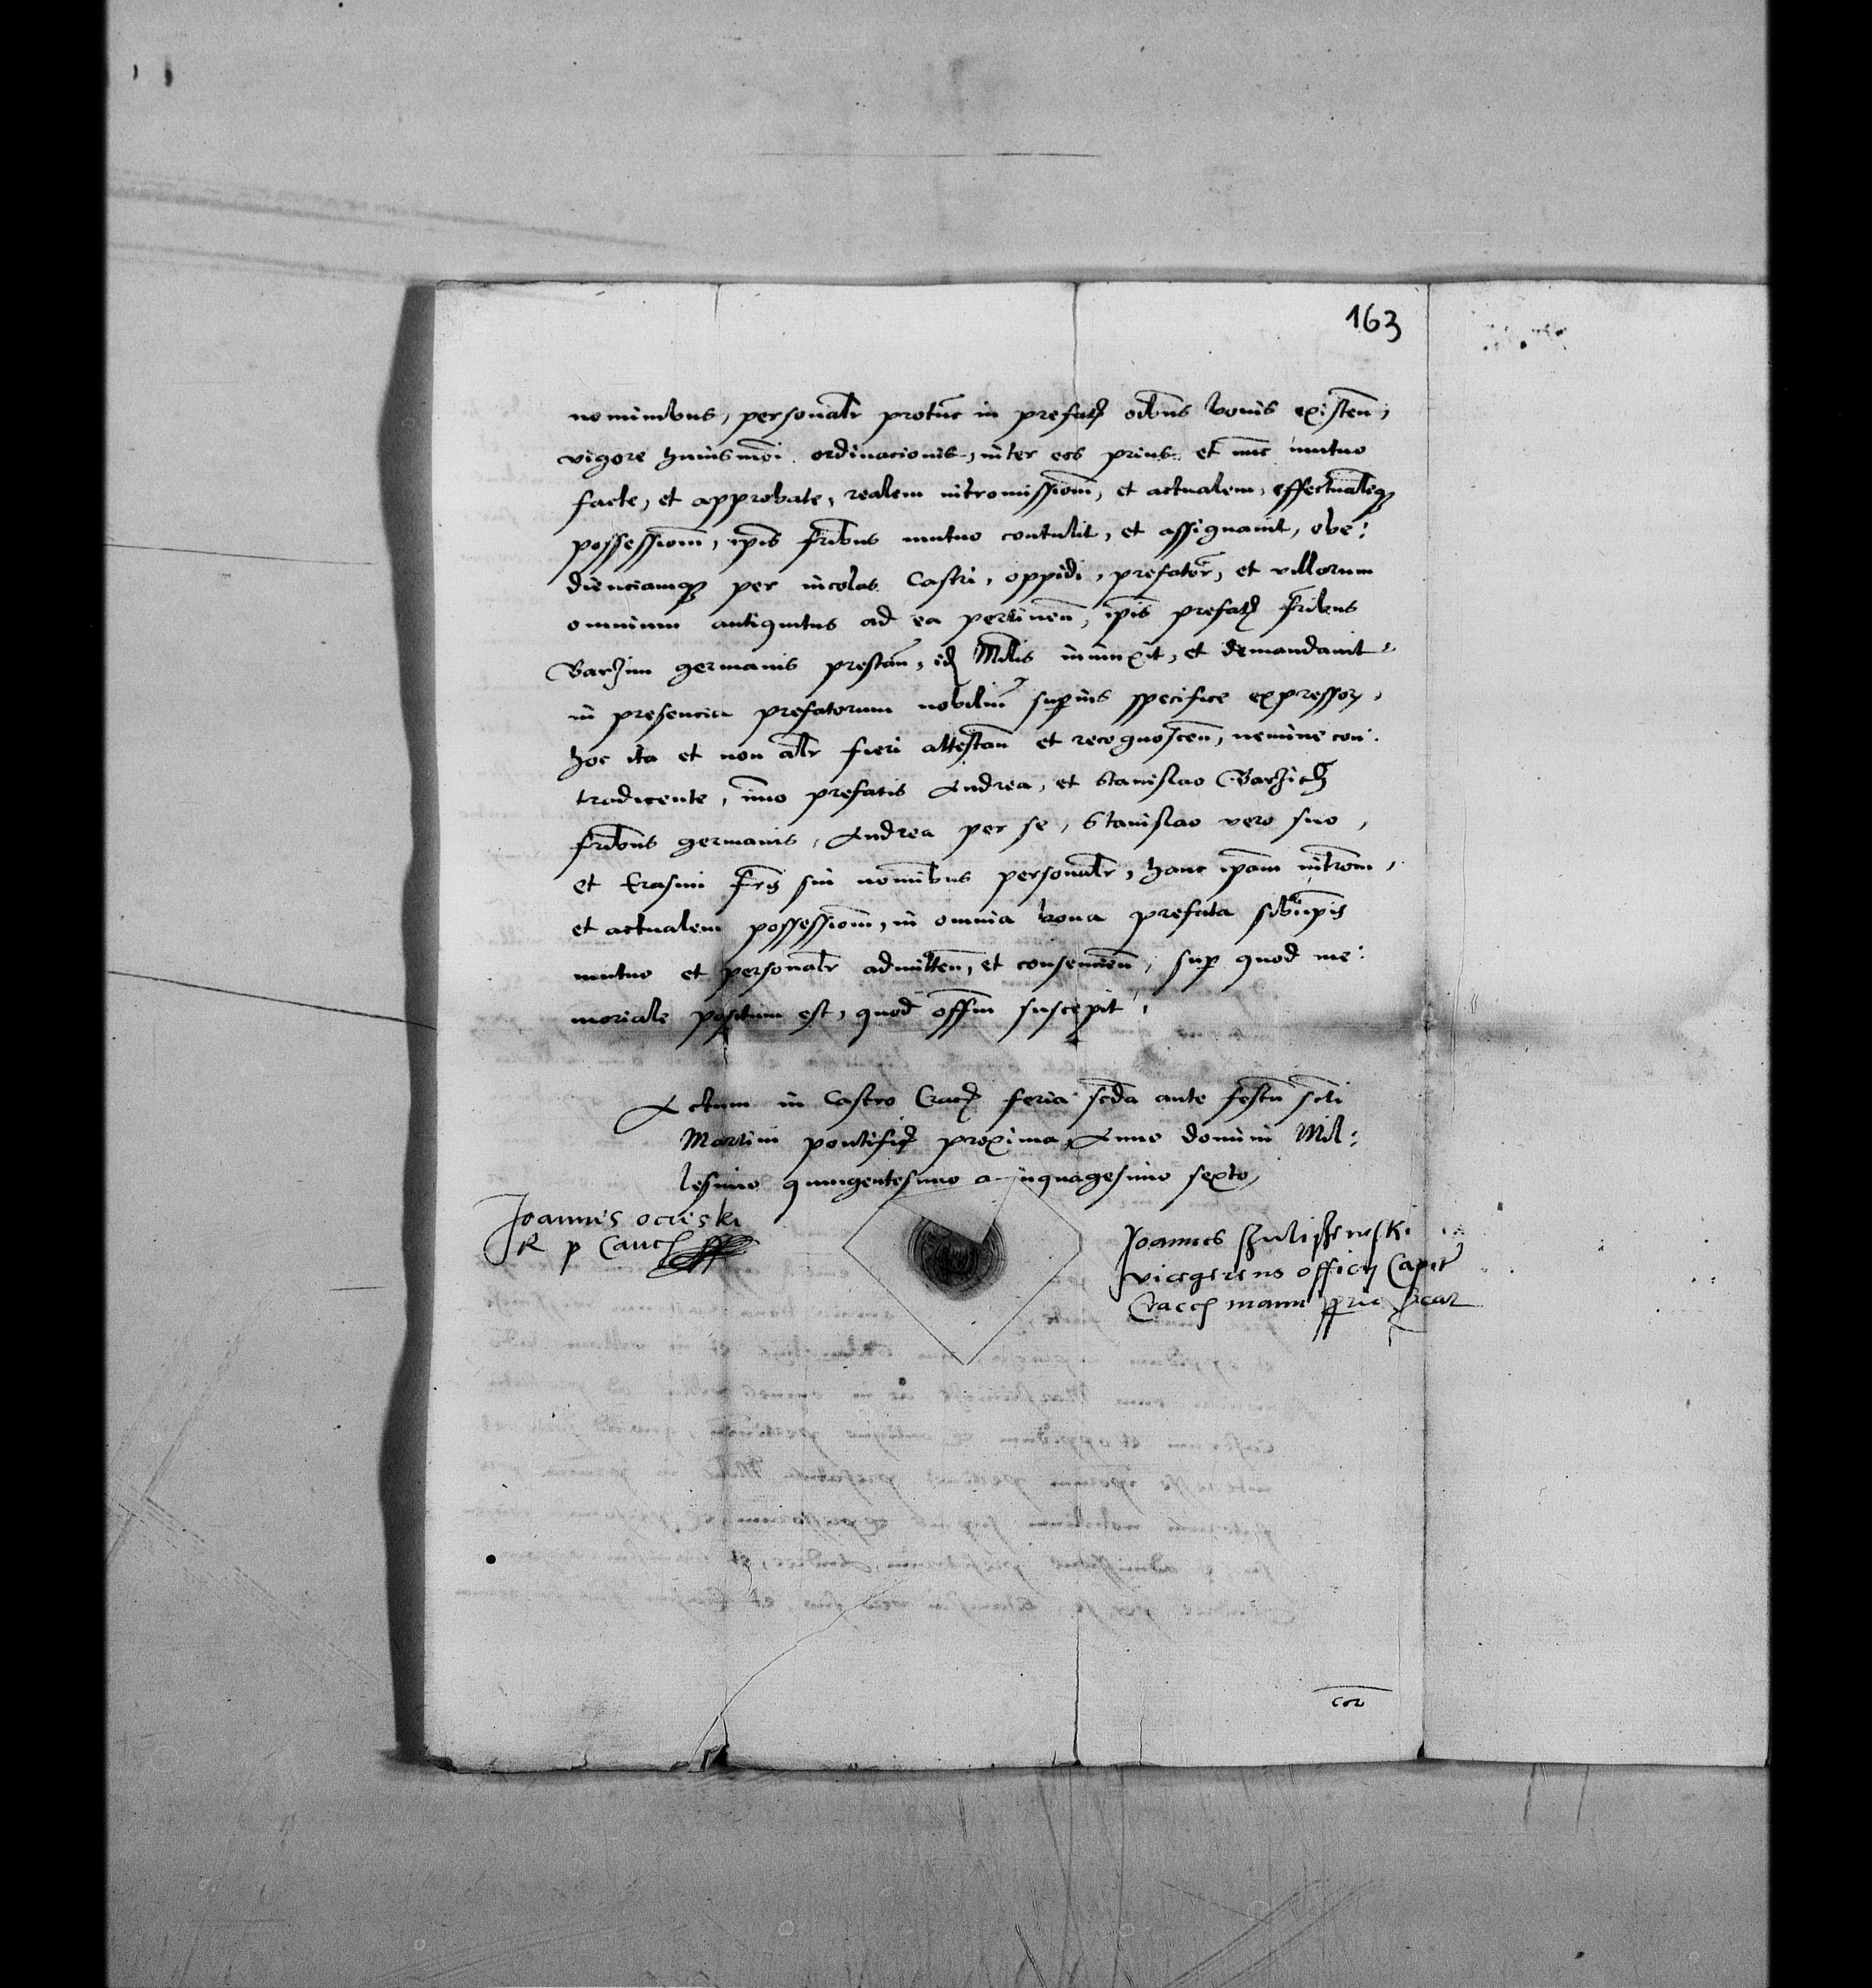 163
nominibus, personalr protūc in prefat odbus bonis existen,
vigore huiusmōi ordinacionis, inter eos prius et nūc mutuo
facte, et approbate, realem intromissionē, et actualem, effectualēq
possessionē, ipīs frībus mutuo contulit, et assignavit, obe:
dienciamq per incolas Castri, oppidi, prefator, et villarum
omnium antiquitus ad ea pertinēn, ipīs prefat frībus
Barzim germanis prestan, id Milis iniunxit, et demandavit
in presencia prefatorum nobiliū supius specifice expressor,
hoc ita et non alr fieri attestan et recognoscen, nemine con:
tradicente, imo prefatis Andrea, et Stanislao Barzich
frībus germanis, Andrea per se, Stanislao vero suo,
et Erasmi frīs sui nominībus personalr, hanc ipam introm,
et actualem possessionē, in omnia bona prefata sibiipīs
mutuo et personalr admitten, et consencien, sup quod me:
moriale positum est, quod offm suscepit,
Actum in Castro Crac feria scda ante festū scti
Martini pontific proxima, Anno domini Mil:
lesimo quingentesimo quinquagesimo sexto,
Joannes ocieski
R p Canc
Joannes
vicegerens officij Capit
Cracc manu ppria
cor